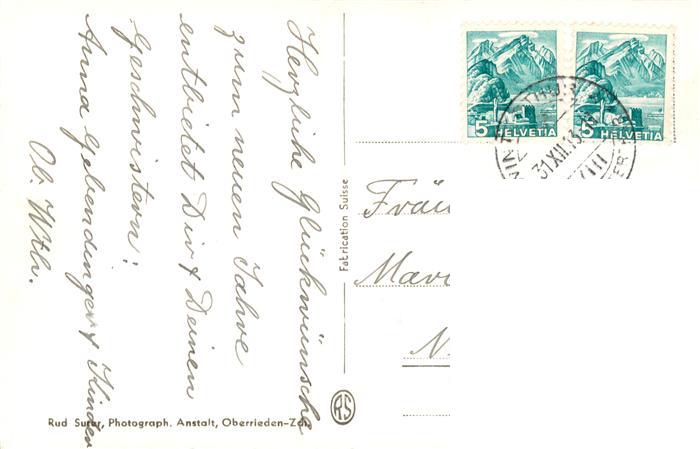 Herzliche Glückwünsche
zum neuen Jahre
entbietet Dir & Deinen
Geschwistern:
Anna Gebendinger & Kinder
Ob. Wthr.
Fabrication Suisse
5 HELVETIA
5 HELVETIA
31.XII.43
Fräu
Mari
N.
RS
Rud Suter, Photograph. Anstalt, Oberrieden-Zch.